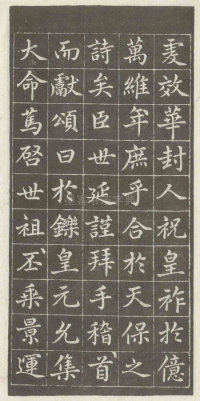 爰效華封人祝皇祚於億
萬維年庶乎合於天保之
詩矣臣世延謹拜手稽首
而獻頌曰於鑠皇元允集
大命篤啓世祖丕乘景運